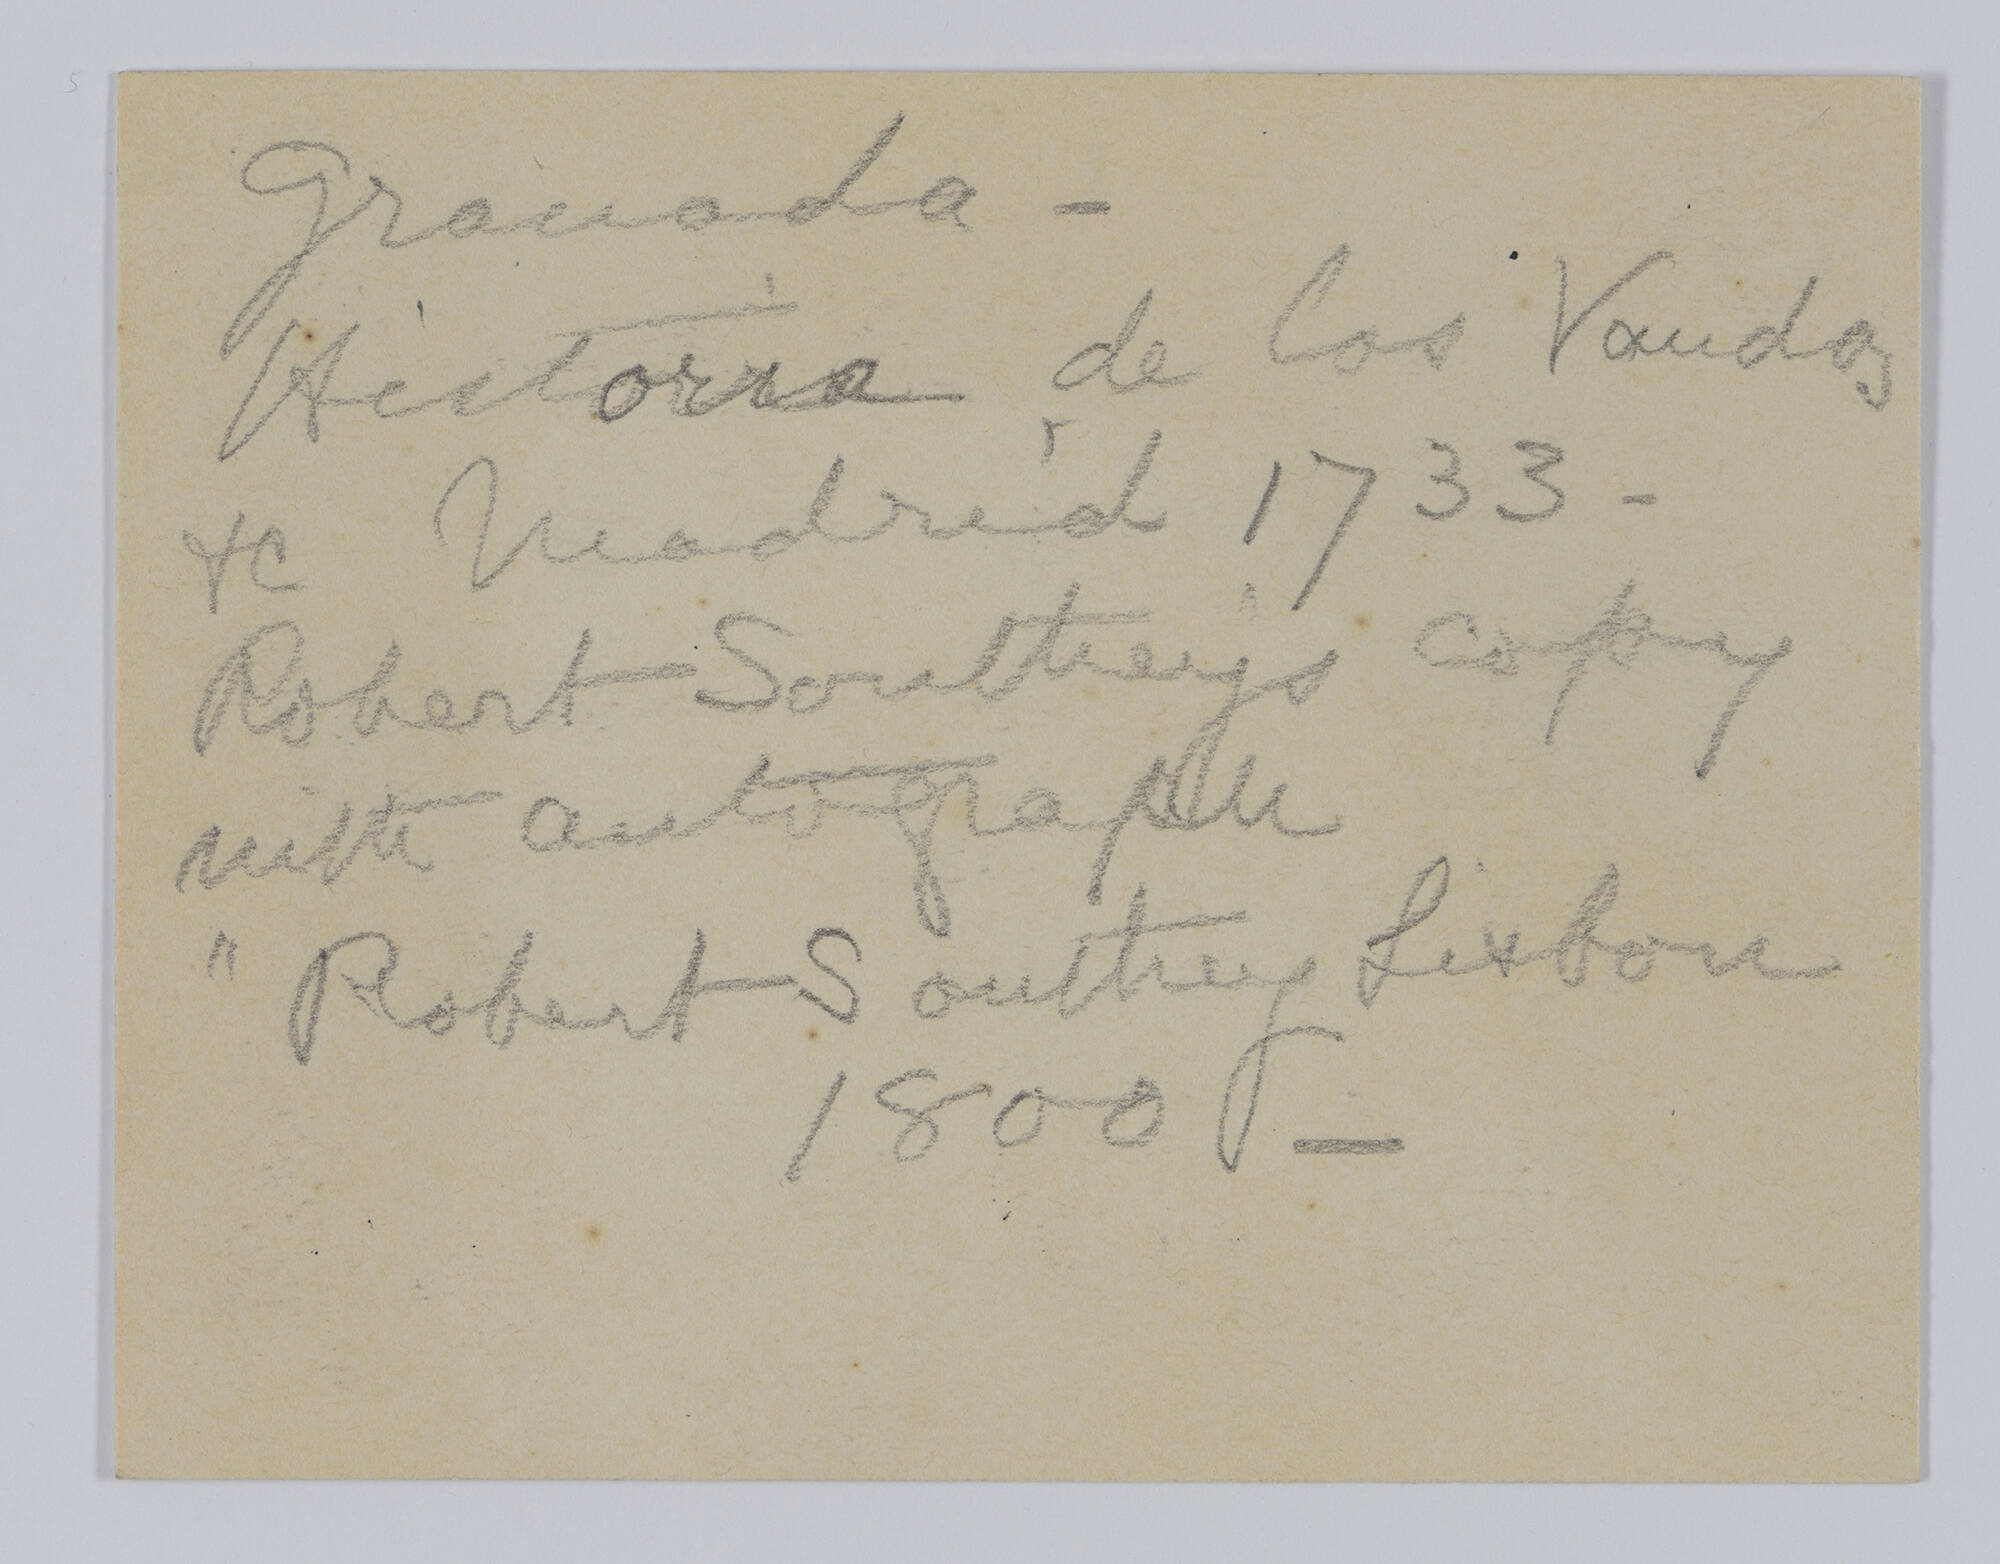 Granada -
Historia de los Vandos
&c Madrid 1733 -
Robert Southey's copy
with autograph
" Robert Southey Lisbon
1800 —